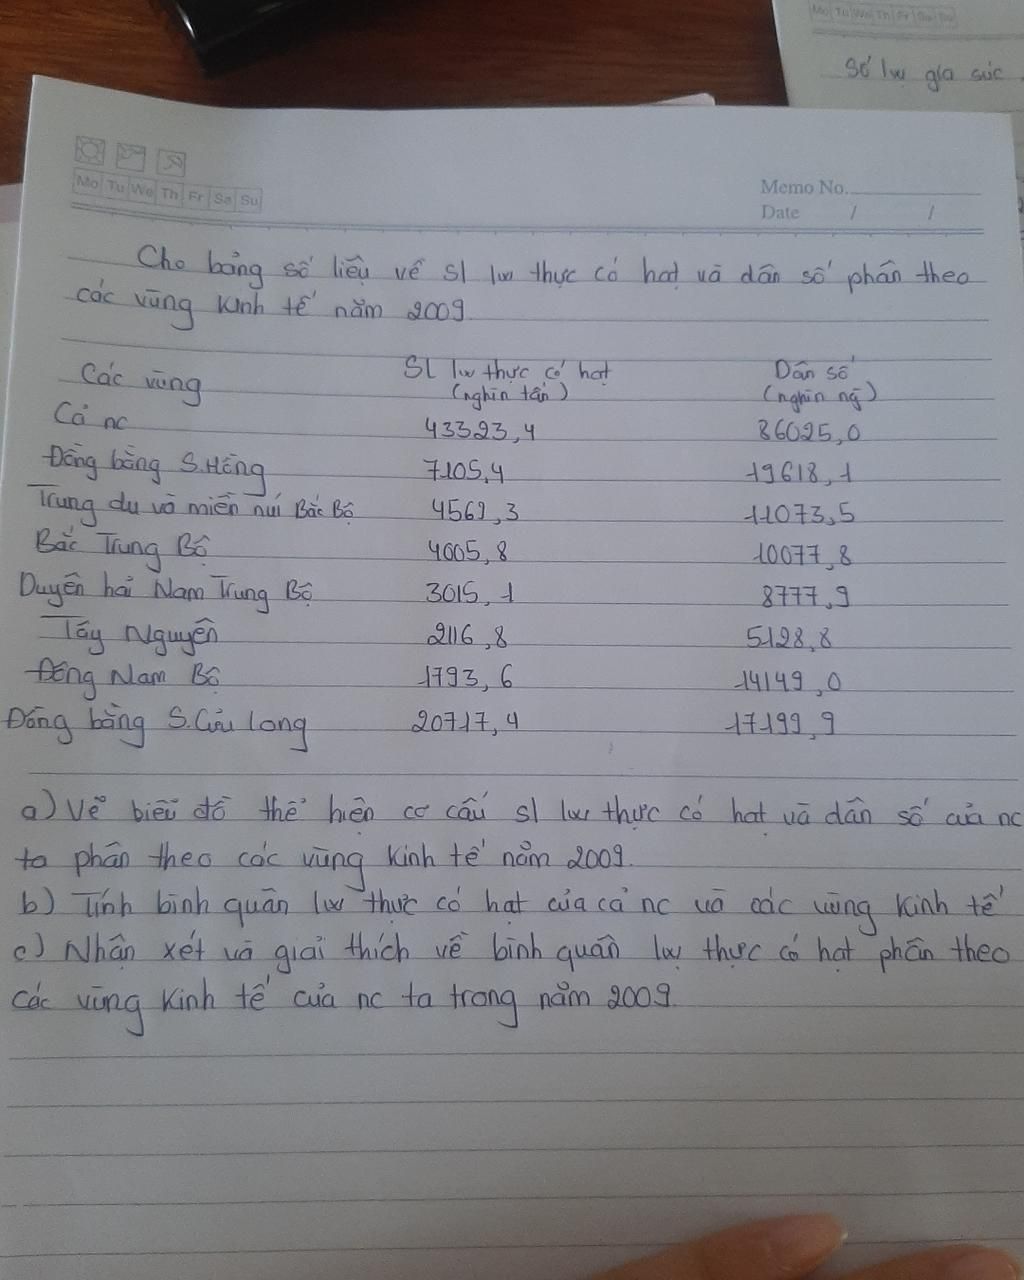 Mo Tu We Th Fr Sa Su
Số lg gia súc
Mo Tu We Th Fr Sa Su
Memo No.
Date / /
Cho bảng số liệu về sl lg thực có hạt và dân số phân theo
các vùng kinh tế năm 2009
Các vùng Sl lg thực có hạt (nghìn tấn) Dân số (nghìn ng)
Cả nc 43323,4 86025,0
Đồng bằng S.Hồng 7105,4 19618,1
Trung du và miền núi Bắc Bộ 4569,3 11073,5
Bắc Trung Bộ 4005,8 10077,8
Duyên hải Nam Trung Bộ 3015,1 8777,9
Tây Nguyên 2116,8 5128,8
Đông Nam Bộ 1793,6 14149,0
Đồng bằng S.Cửu long 20717,4 17199,9
a) Vẽ biểu đồ thể hiện cơ cấu sl lg thực có hạt và dân số của nc
ta phân theo các vùng kinh tế năm 2009.
b) Tính bình quân lg thực có hạt của cả nc và các vùng kinh tế
c) Nhận xét và giải thích về bình quân lg thực có hạt phân theo
các vùng kinh tế của nc ta trong năm 2009.